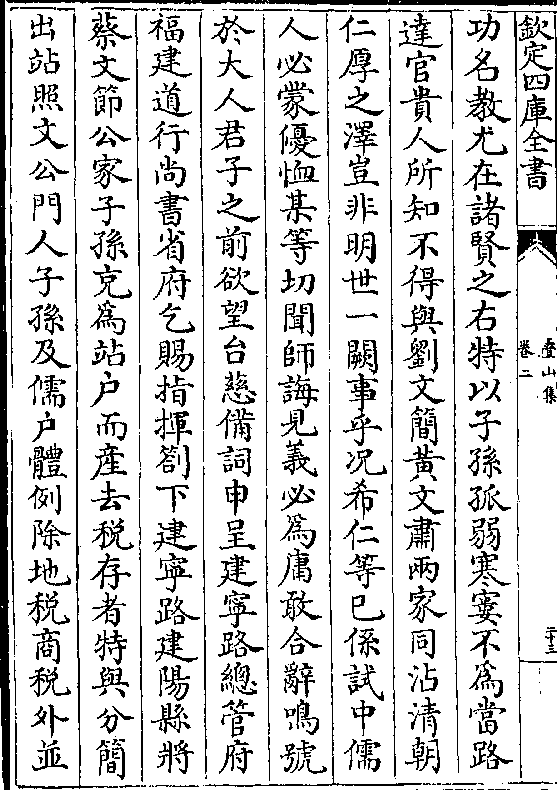 欽定四庫全書
疊山集
卷二
二十三
功名教尤在諸賢之右特以子孫孤弱寒窶不為當路
達官貴人所知不得與劉文簡黃文肅兩家同沾清朝
仁厚之澤豈非明世一闕事乎况希仁等已係試中儒
人必蒙優恤某等切聞師誨見義必為庸敢合辭鳴號
於大人君子之前欲望台慈備詞申呈建寧路總管府
福建道行尚書省府乞賜指揮劄下建寧路建陽縣將
蔡文節公家子孫克為站户而產去税存者特與分簡
出站照文公門人子孫及儒户體例除地税商税外並